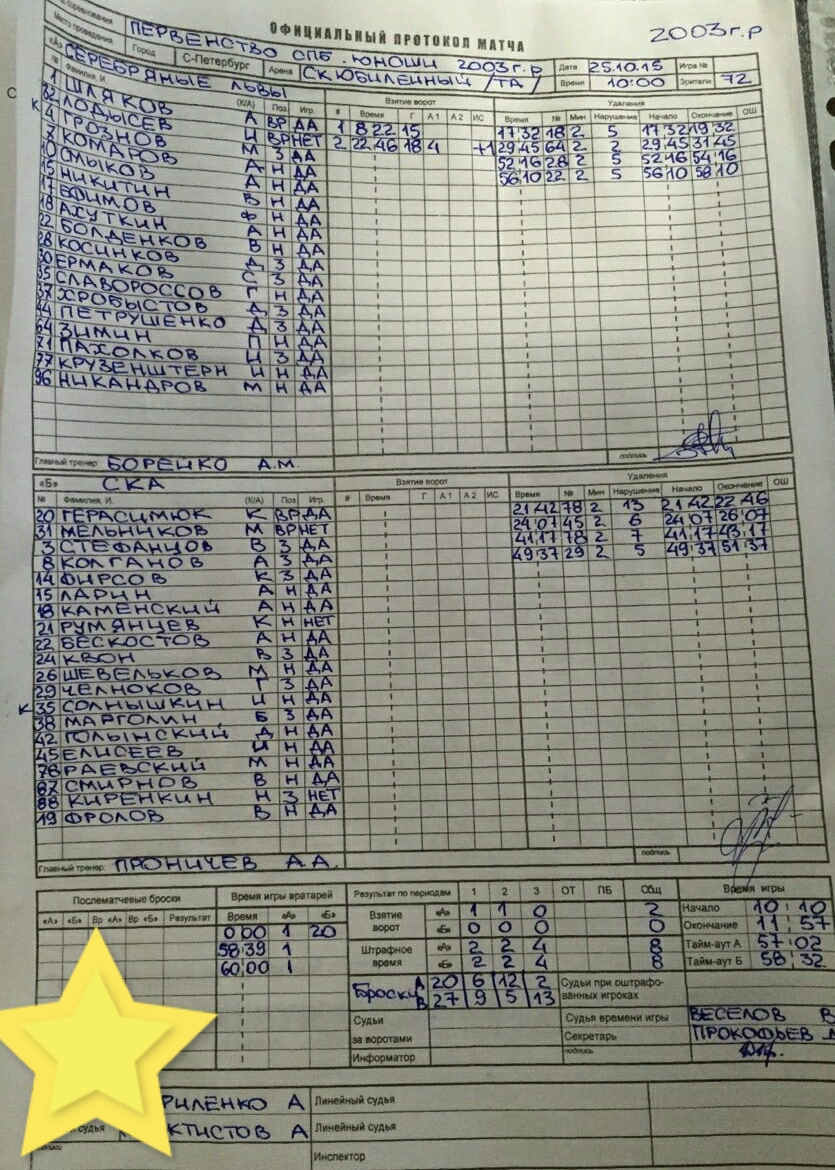 ОФИЦИАЛЬНЫЙ ПРОТОКОЛ МАТЧА
2003 г.р
ПЕРВЕНСТВО СПБ. ЮНОШИ 2003 г.р
Место проведения Город С-Петербург Арена СК ЮБИЛЕЙНЫЙ /ТА/ Дата 25.10.15 Игра №
Время 10:00 Зрители 72
«А» СЕРЕБРЯНЫЕ ЛЬВЫ
№ Фамилия, И. (К/А) Поз Игр. Взятие ворот Удаления
# Время Г А1 А2 ИС Время № Мин Нарушение Начало Окончание ОШ
1 ШЛЯКОВ А ВР ДА 1 8 22 15 17 32 18 2 5 17 32 19 32
К 32 ЛОДЫСЕВ И ВР НЕТ 2 22 46 18 4 +1 29 45 64 2 2 29 45 31 45
4 ГРОЗНОВ М З ДА 52 16 28 2 5 52 16 54 16
7 КОМАРОВ А Н ДА 56 10 22 2 5 56 10 58 10
10 СМЫКОВ А Н ДА
15 НИКИТИН В Н ДА
17 ЕФИМОВ Ф Н ДА
18 АХУТКИН А Н ДА
22 БОЛДЕНКОВ В Н ДА
28 КОСИНКОВ Д З ДА
30 ЕРМАКОВ С З ДА
35 СЛАВОРОССОВ Г Н ДА
37 ХРОБЫСТОВ Д З ДА
44 ПЕТРУШЕНКО Д З ДА
64 ЗИМИН П Н ДА
71 ПАХОЛКОВ И З ДА
77 КРУЗЕНШТЕРН И Н ДА
96 НИКАНДРОВ М Н ДА
Главный тренер: БОРЕЙКО А.М. подпись
«Б» СКА Взятие ворот Удаления
№ Фамилия, И. (К/А) Поз Игр. # Время Г А1 А2 ИС Время № Мин Нарушение Начало Окончание ОШ
20 ГЕРАСИМЮК К ВР ДА 21 42 78 2 13 21 42 22 46
31 МЕЛЬНИКОВ М ВР НЕТ 24 07 45 2 6 24 07 26 07
3 СТЕФАНЦОВ В З ДА 41 17 78 2 7 41 17 43 17
8 КОЛГАНОВ А З ДА 49 37 29 2 5 49 37 51 37
14 ФИРСОВ К З ДА
15 ЛАРИН А Н ДА
18 КАМЕНСКИЙ А Н ДА
21 РУМЯНЦЕВ К Н НЕТ
22 БЕСКОСТОВ А Н ДА
24 КВОН В З ДА
26 ШЕВЕЛЬКОВ М Н ДА
29 ЧЕЛНОКОВ Г З ДА
К 35 СОЛНЫШКИН И Н ДА
38 МАРГОЛИН Б З ДА
42 ГОЛЫНСКИЙ Д Н ДА
45 ЕЛИСЕЕВ И Н ДА
78 РАЕВСКИЙ М Н ДА
87 СМИРНОВ В Н ДА
88 КИРЕНКИН Н З НЕТ
19 ФРОЛОВ В Н ДА
Главный тренер: ПРОНИЧЕВ А А. подпись
Послематчевые броски Время игры вратарей Результат по периодам 1 2 3 ОТ ПБ Общ Время игры
«А» «Б» Вр «А» Вр «Б» Результат Время «А» «Б» Взятие ворот «А» 1 1 0 2 Начало 10 10
0 00 1 20 «Б» 0 0 0 0 Окончание 11 57
58:39 1 Штрафное время «А» 2 2 4 8 Тайм-аут А 57:02
60:00 1 «Б» 2 2 4 8 Тайм-аут Б 58 32
Броски А 20 6 12 2 Судьи при оштрафованных игроках
В 27 9 5 13
Судьи за воротами Судья времени игры ВЕСЕЛОВ В
Секретарь ПРОКОФЬЕВ Д
Информатор подпись
РИЛЕНКО А Линейный судья
судья КТИСТОВ А Линейный судья
Инспектор